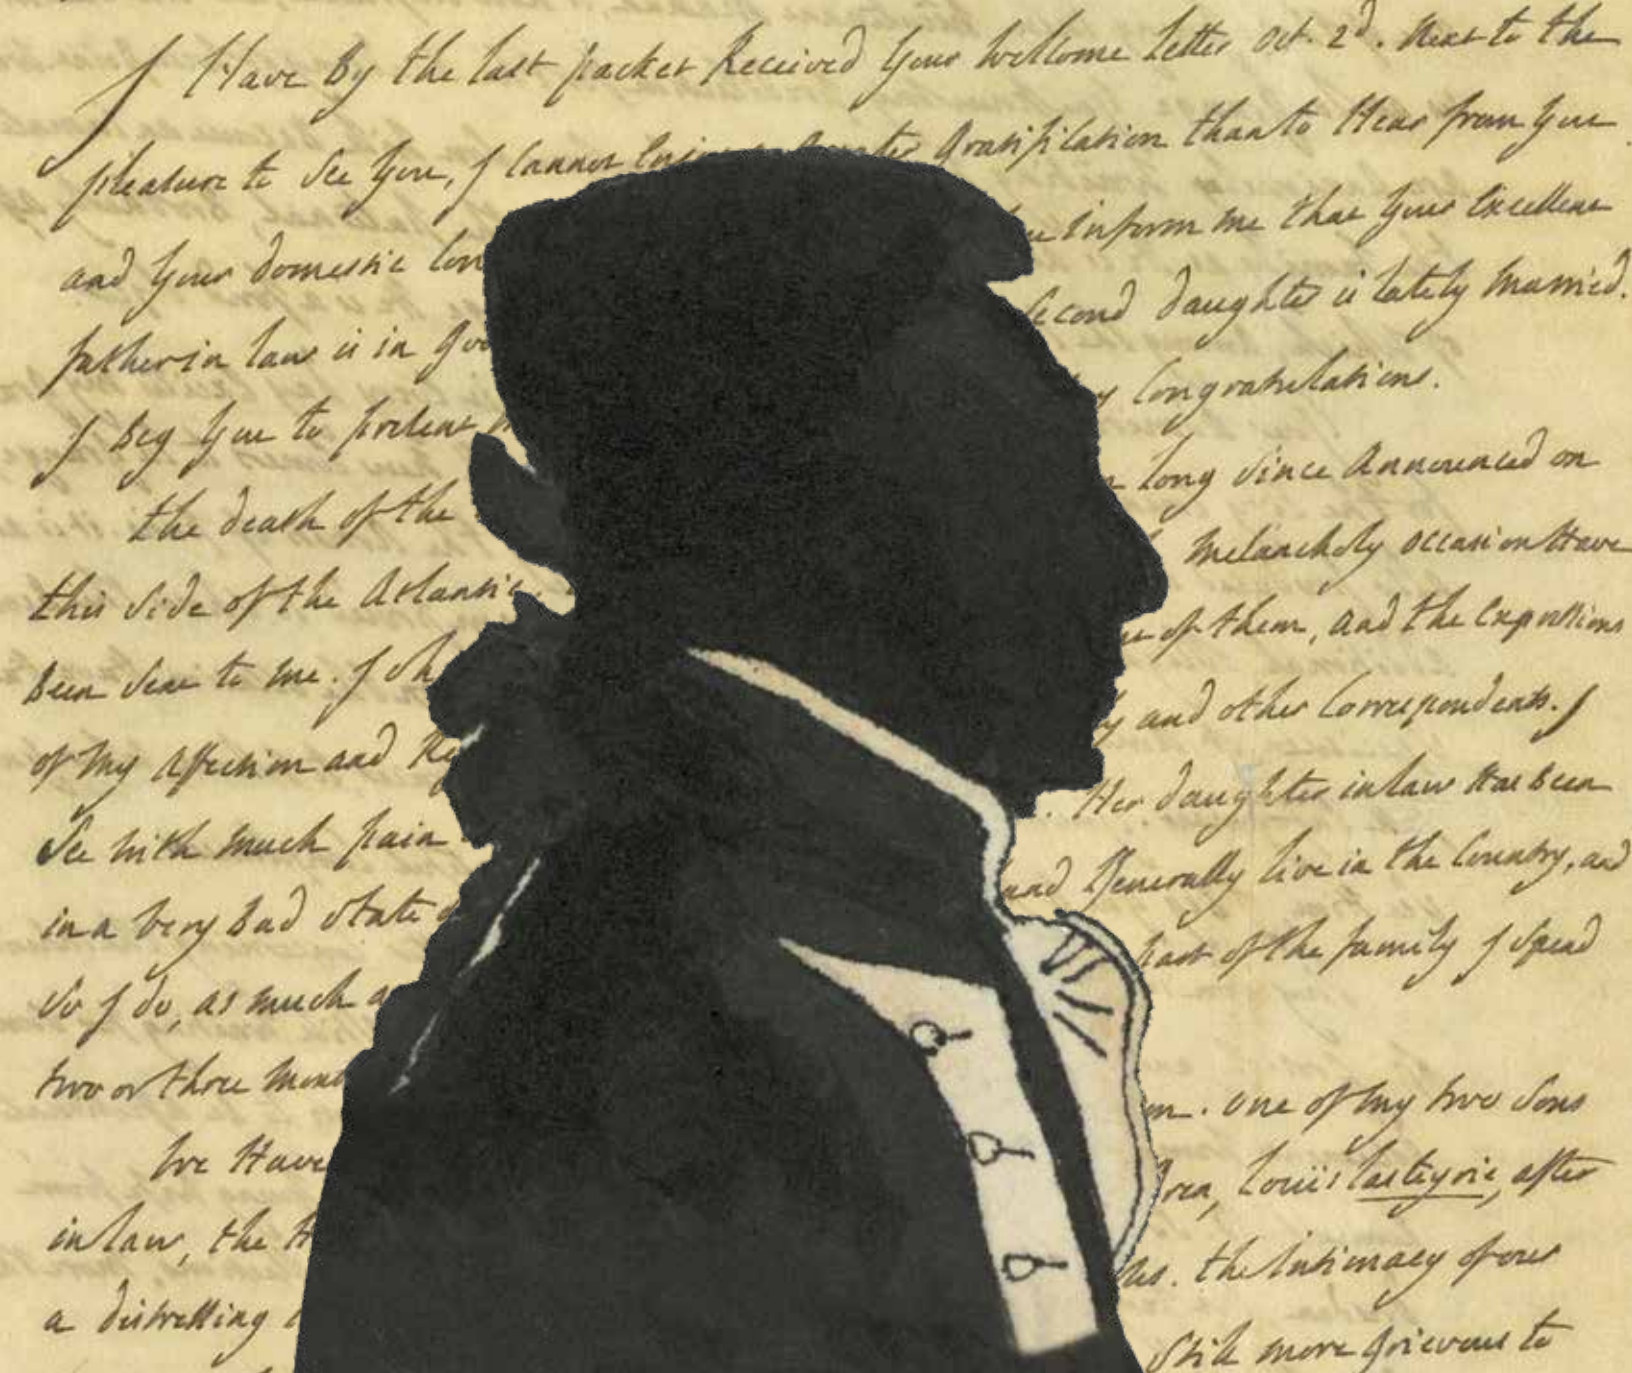 I Have By the last packet Received Your Wellcome Letter Oct. 2d. Next to the
pleasure to See You, I Cannot Enjoy a Greater Gratification than to Hear from You
and Your domestic inform me that Your Excellent
father in law is in Second daughter is lately Married.
I Beg You to present Congratulations.
the death of the long Since Announced on
this Side of the Atlantic. melancholy occasion Have
Been Sent to me. I of them, and the expressions
of My Affection and and other Correspondents. I
See with much pain Her daughter in law Has Been
in a Very Bad State and Generally live in the Country, and
So I do, as much part of the family I Spend
two or three
We Have One of My two Sons
in law, the Louis Lasteyrie, after
a distressing the Intimacy of our
Still more Grievous to